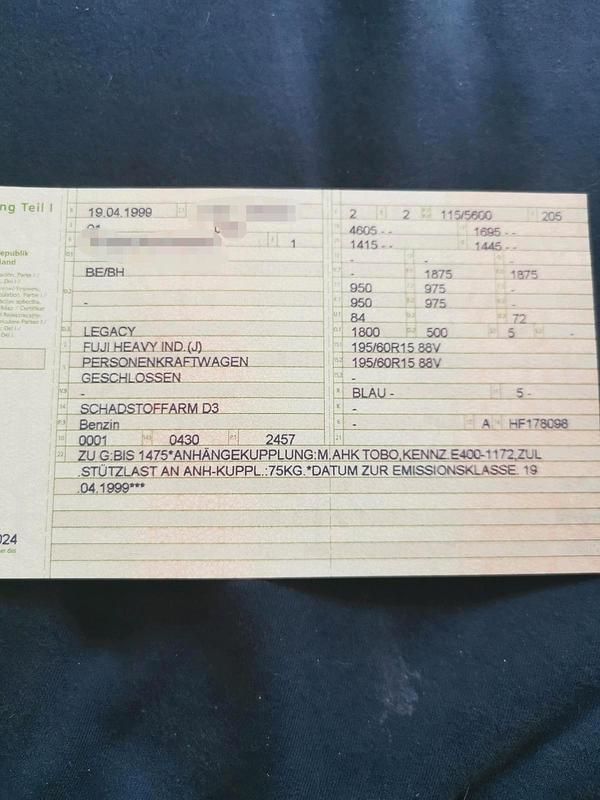 ng Teil I
epublik
land
19.04.1999
1
BE/BH
-
LEGACY
FUJI HEAVY IND.(J)
PERSONENKRAFTWAGEN
GESCHLOSSEN
-
SCHADSTOFFARM D3
Benzin
0001 0430 2457
2 2 115/5600 205
4605 - - 1695 - -
1415 - - 1445 - -
- - -
- 1875 1875
950 975 -
950 975 -
84 - 72
1800 500 5 -
195/60R15 88V
195/60R15 88V
-
BLAU - 5 -
-
- A HF178098
ZU G:BIS 1475*ANHÄNGEKUPPLUNG:M.AHK TOBO,KENNZ.E400-1172,ZUL
.STÜTZLAST AN ANH-KUPPL.:75KG.*DATUM ZUR EMISSIONSKLASSE. 19
.04.1999***
024